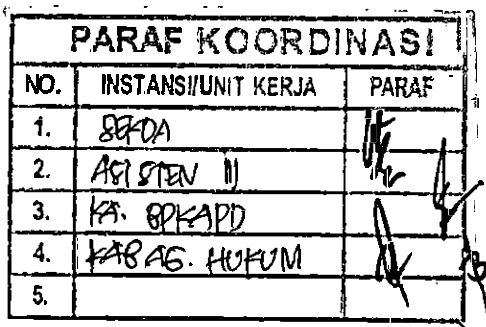 PARAF KOORDINASI
NO. INSTANSI/UNIT KERJA PARAF
1. SEKDA
2. ASISTEN II
3. KA. BPKAPD
4. KABAG. HUKUM
5.